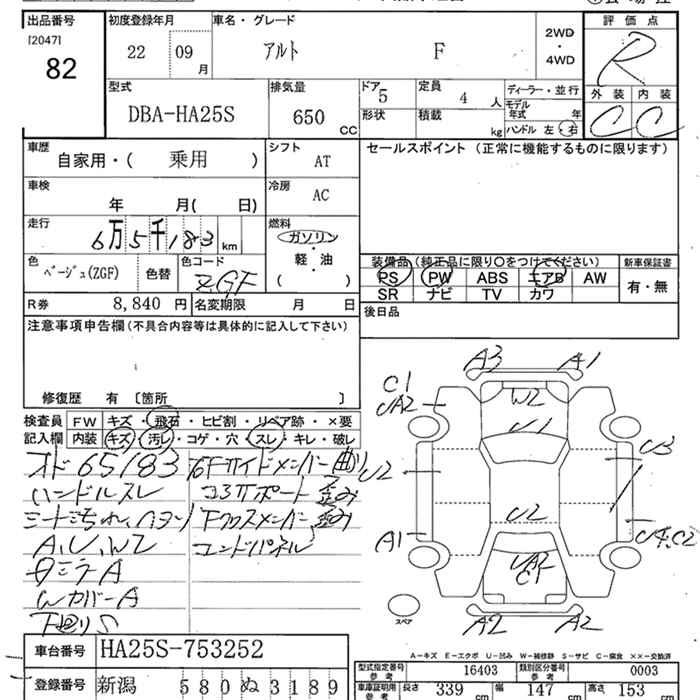 出品番号 初度登録年月 車名・グレード 評価点
[2047]
82 22 09月 アルト F 2WD・4WD R
型式 DBA-HA25S 排気量 650 CC
ドア 5 定員 4人 ディーラー・並行
形状 積載 kg モデル年式 年
ハンドル 左・右
外装 内装
C C
車歴 自家用・(乗用) シフト AT
セールスポイント (正常に機能するものに限ります)
車検 年 月(日) 冷房 AC
走行 6万5千183km 燃料 ガソリン・軽・油
( )
色 ベージュ(ZGF) 色替 色コード ZGF
装備品 (純正品に限り○をつけてください) 新車保証書
PS PW ABS エアB AW 有・無
SR ナビ TV カワ
R券 8,840円 名変期限 月 日
後日品
注意事項申告欄(不具合内容等は具体的に記入して下さい)
修復歴 有 〔箇所 〕
検査員記入欄 FW キズ・飛石・ヒビ割・リペア跡・×要
内装 キズ・汚レ・コゲ・穴・スレ・キレ・破レ
オド65183 右Fサイドメンバー曲り
ハンドルスレ コアサポート歪み
シートヨゴレ、ハタン Fクロスメンバー歪み
A,U,W2 エンドパネル
WカバーA
下廻りS
A3 A1
C1
UA2 W2
U1
U2 U3
U2
A1
C1
スペア
A2 A2
A-キズ E-エクボ U-凹み W-補修跡 S-サビ C-腐食 ××-交換済
車台番号 HA25S-753252
型式指定番号 参考 16403 類別区分番号 参考 0003
登録番号 新潟 580ぬ3189
車庫証明用 参考 長さ 339cm 幅 147cm 高さ 153cm